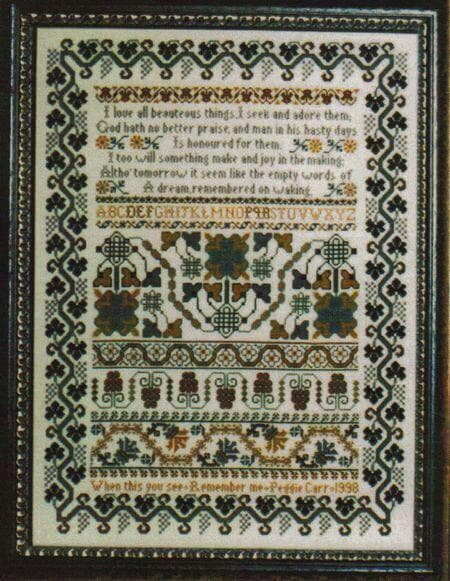 I love all beauteous things, I seek and adore them;
God hath no better praise, and man in his hasty days
Is honoured for them.
I too will something make and joy in the making;
Altho' tomorrow it seem like the empty words of
A dream, remembered on waking.
ABCDEFGHIJKLMNOPQRSTUVWXYZ
When this you see - Remember me - Peggie Carr - 1998